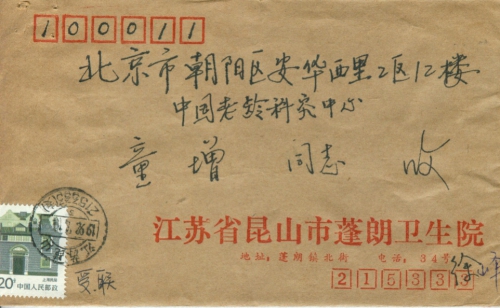 100011
北京市朝阳区安华西里2区12楼
中国老龄科究中心
童增 同志 收
江苏省昆山市蓬朗卫生院
地址：蓬朗镇北街 电话：34号
215333
受联
20分 中国人民邮政
上海民居